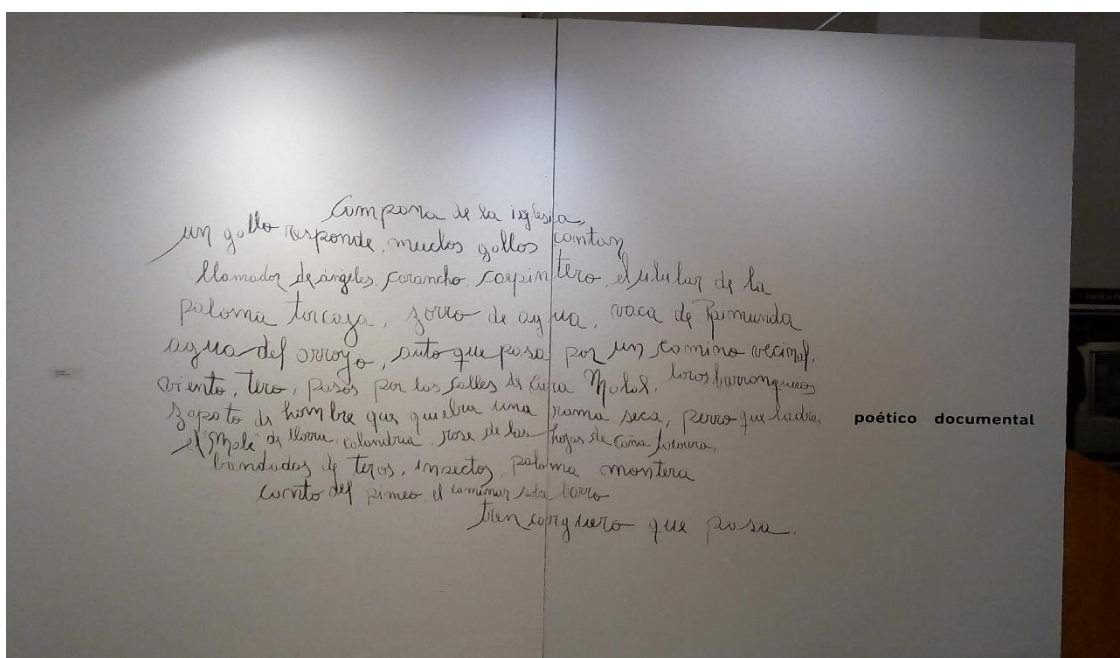 Campana de la iglesia,
un gallo responde, muchos gallos cantan
llamador de ángeles, carancho, carpintero, el ulular de la
paloma torcaza, zorro de agua, vaca de Raimunda
agua del arroyo, auto que pasa por un camino vecinal,
viento, tero, pasos por las calles de Cura Malal, loros barranqueros
zapato de hombre que quiebra una rama seca, perro que ladra,
el "Mole" de calandria, rose de las hojas de caña
bandadas de teros, insectos, paloma montera
canto del pimeo el caminar barro
tren carguero que pasa.
poético documental